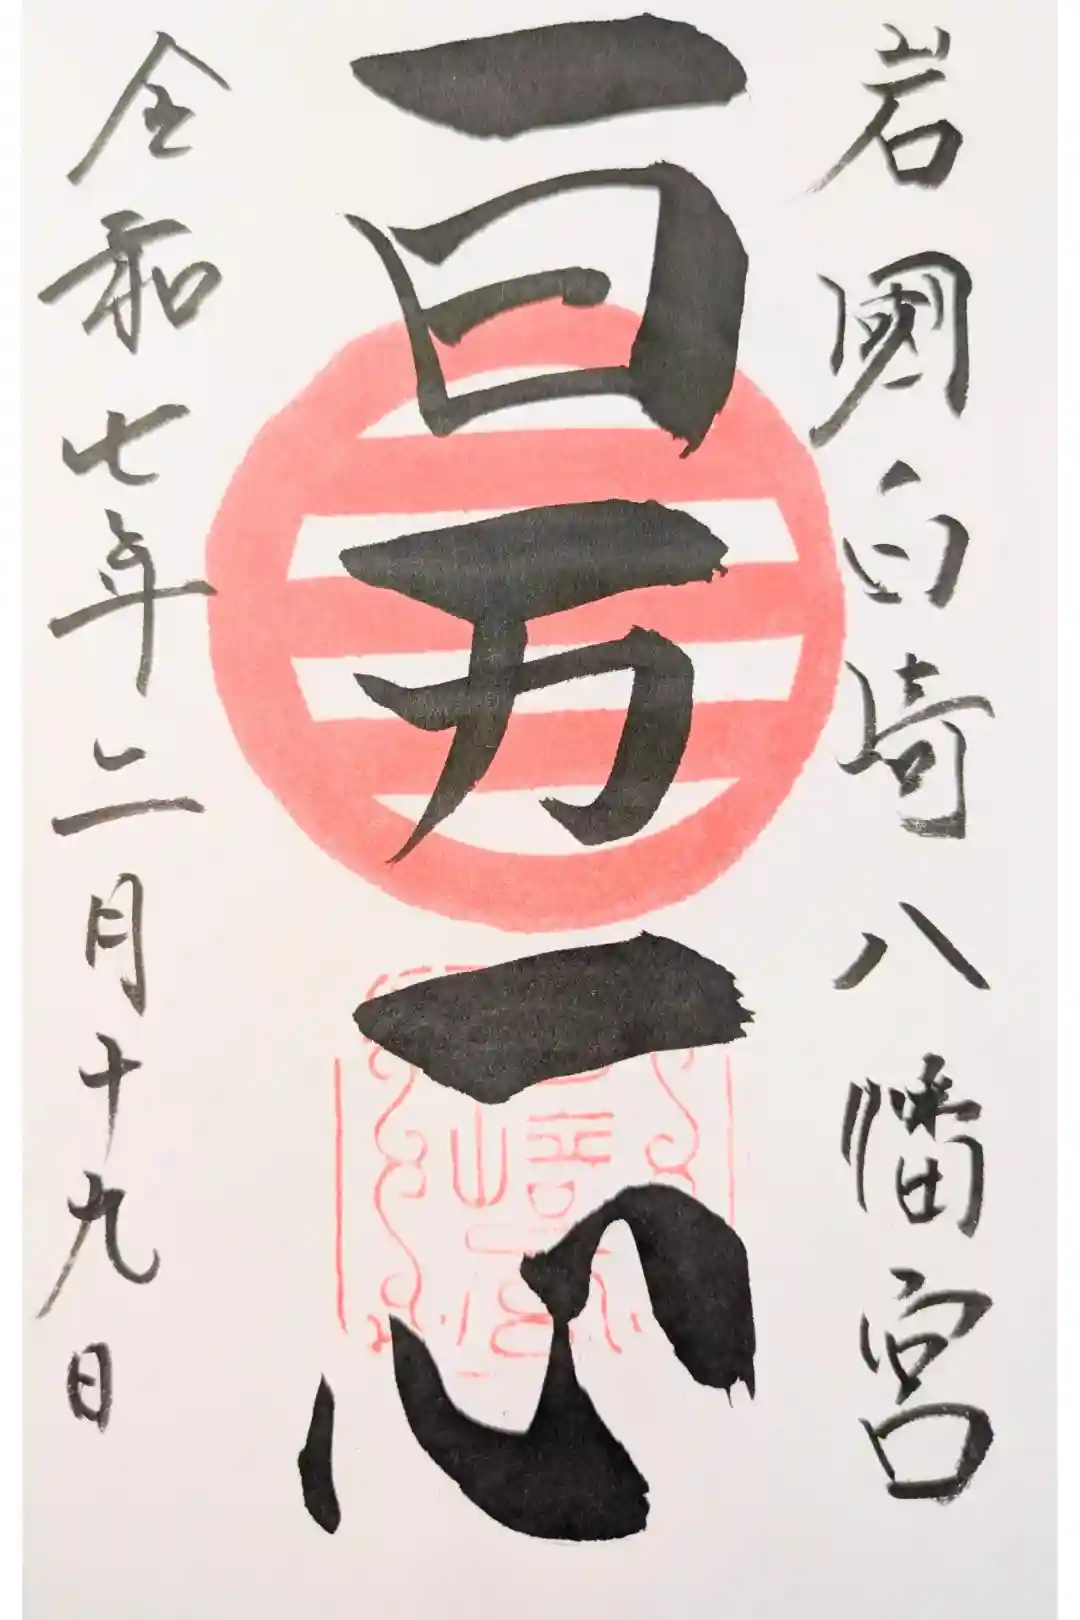 岩國白崎八幡宮
一日一力一心
令和七年二月十九日